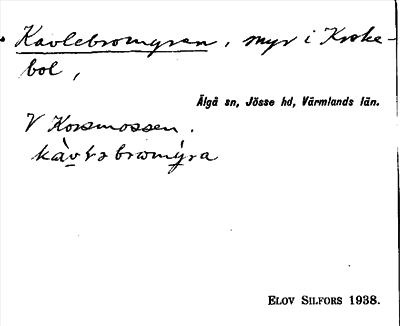 Kavlebromyren, myr i Kroke-
bol,
Älgå sn, Jösse hd, Värmlands län.
V Korsmossen.
kàvlabromýra
ELOV SILFORS 1938.